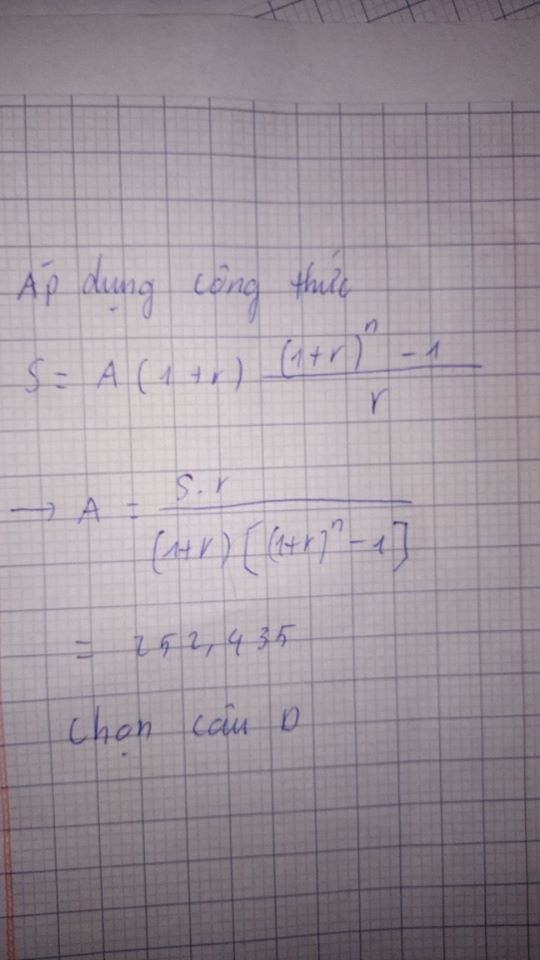 Áp dụng công thức
S = A (1 + r) \frac{(1+r)^n - 1}{r}
→ A = \frac{S.r}{(1+r)[(1+r)^n - 1]}
= 252,435
Chọn câu D